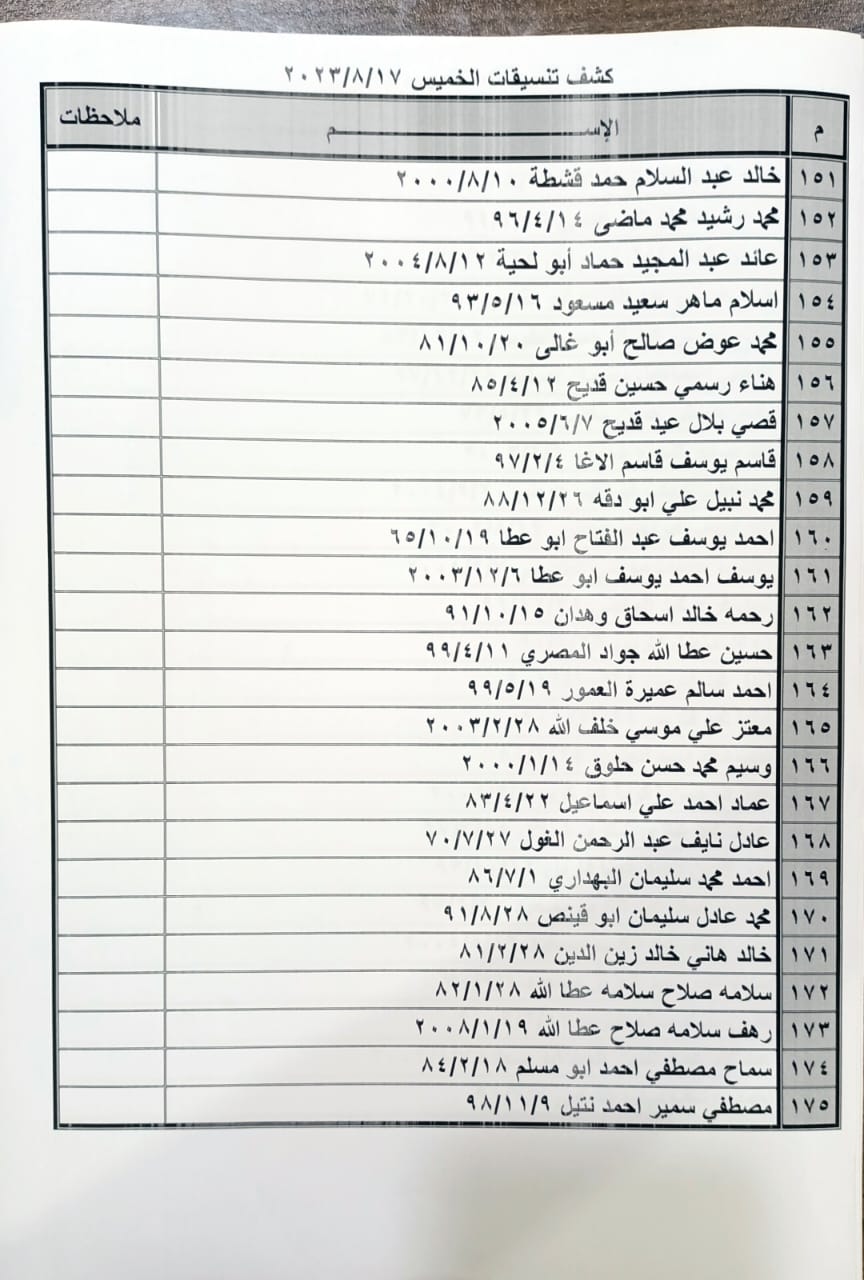 كشف تنسيقات الخميس ٢٠٢٣/٨/١٧
م الإســـــــــم ملاحظات
١٥١ خالد عبد السلام حمد قشطة ٢٠٠٠/٨/١٠
١٥٢ محمد رشيد محمد ماضى ٩٦/٤/١٤
١٥٣ عائد عبد المجيد حماد أبو لحية ٢٠٠٤/٨/١٢
١٥٤ اسلام ماهر سعيد مسعود ٩٣/٥/١٦
١٥٥ محمد عوض صالح أبو غالى ٨١/١٠/٢٠
١٥٦ هناء رسمي حسين قديح ٨٥/٤/١٢
١٥٧ قصي بلال عيد قديح ٢٠٠٥/٦/٧
١٥٨ قاسم يوسف قاسم الاغا ٩٧/٢/٤
١٥٩ محمد نبيل علي ابو دقه ٨٨/١٢/٢٦
١٦٠ احمد يوسف عبد الفتاح ابو عطا ٦٥/١٠/١٩
١٦١ يوسف احمد يوسف ابو عطا ٢٠٠٣/١٢/٦
١٦٢ رحمه خالد اسحاق وهدان ٩١/١٠/١٥
١٦٣ حسين عطا الله جواد المصري ٩٩/٤/١١
١٦٤ احمد سالم عميرة العمور ٩٩/٥/١٩
١٦٥ معتز علي موسي خلف الله ٢٠٠٣/٢/٢٨
١٦٦ وسيم محمد حسن حلوق ٢٠٠٠/١/١٤
١٦٧ عماد احمد علي اسماعيل ٨٣/٤/٢٢
١٦٨ عادل نايف عبد الرحمن الغول ٧٠/٧/٢٧
١٦٩ احمد محمد سليمان البهداري ٨٦/٧/١
١٧٠ محمد عادل سليمان ابو قينص ٩١/٨/٢٨
١٧١ خالد هاني خالد زين الدين ٨١/٢/٢٨
١٧٢ سلامه صلاح سلامه عطا الله ٨٢/١/٢٨
١٧٣ رهف سلامه صلاح عطا الله ٢٠٠٨/١/١٩
١٧٤ سماح مصطفي احمد ابو مسلم ٨٤/٢/١٨
١٧٥ مصطفي سمير احمد نتيل ٩٨/١١/٩